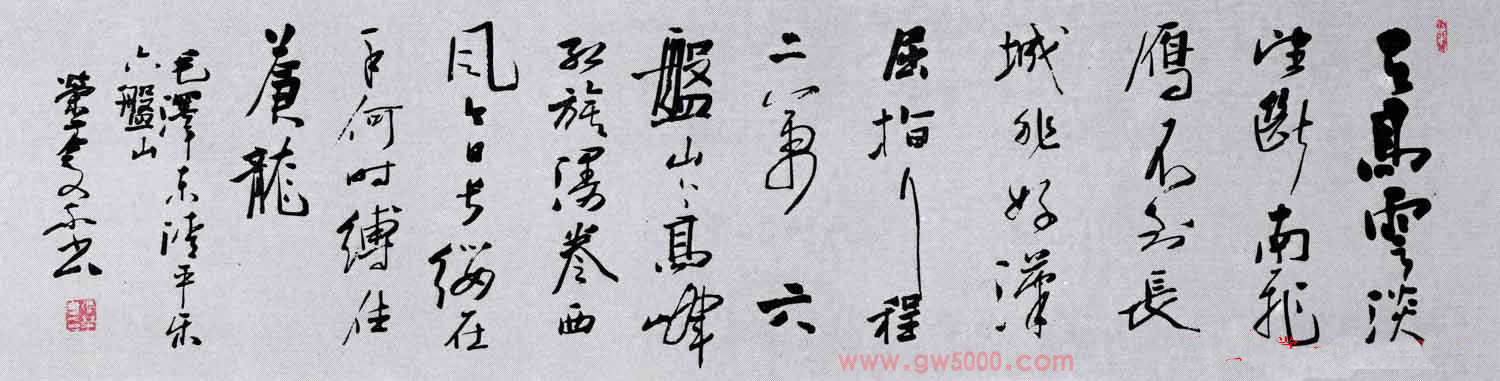 天高雲淡
望斷南飛
雁不到長
城非好漢
屈指行程
二萬 六
盤山上高峰
紅旗漫卷西
风今日长缨在
手何时縛住
蒼龍
毛澤東清平乐
六盤山
书
www.gw5000.com